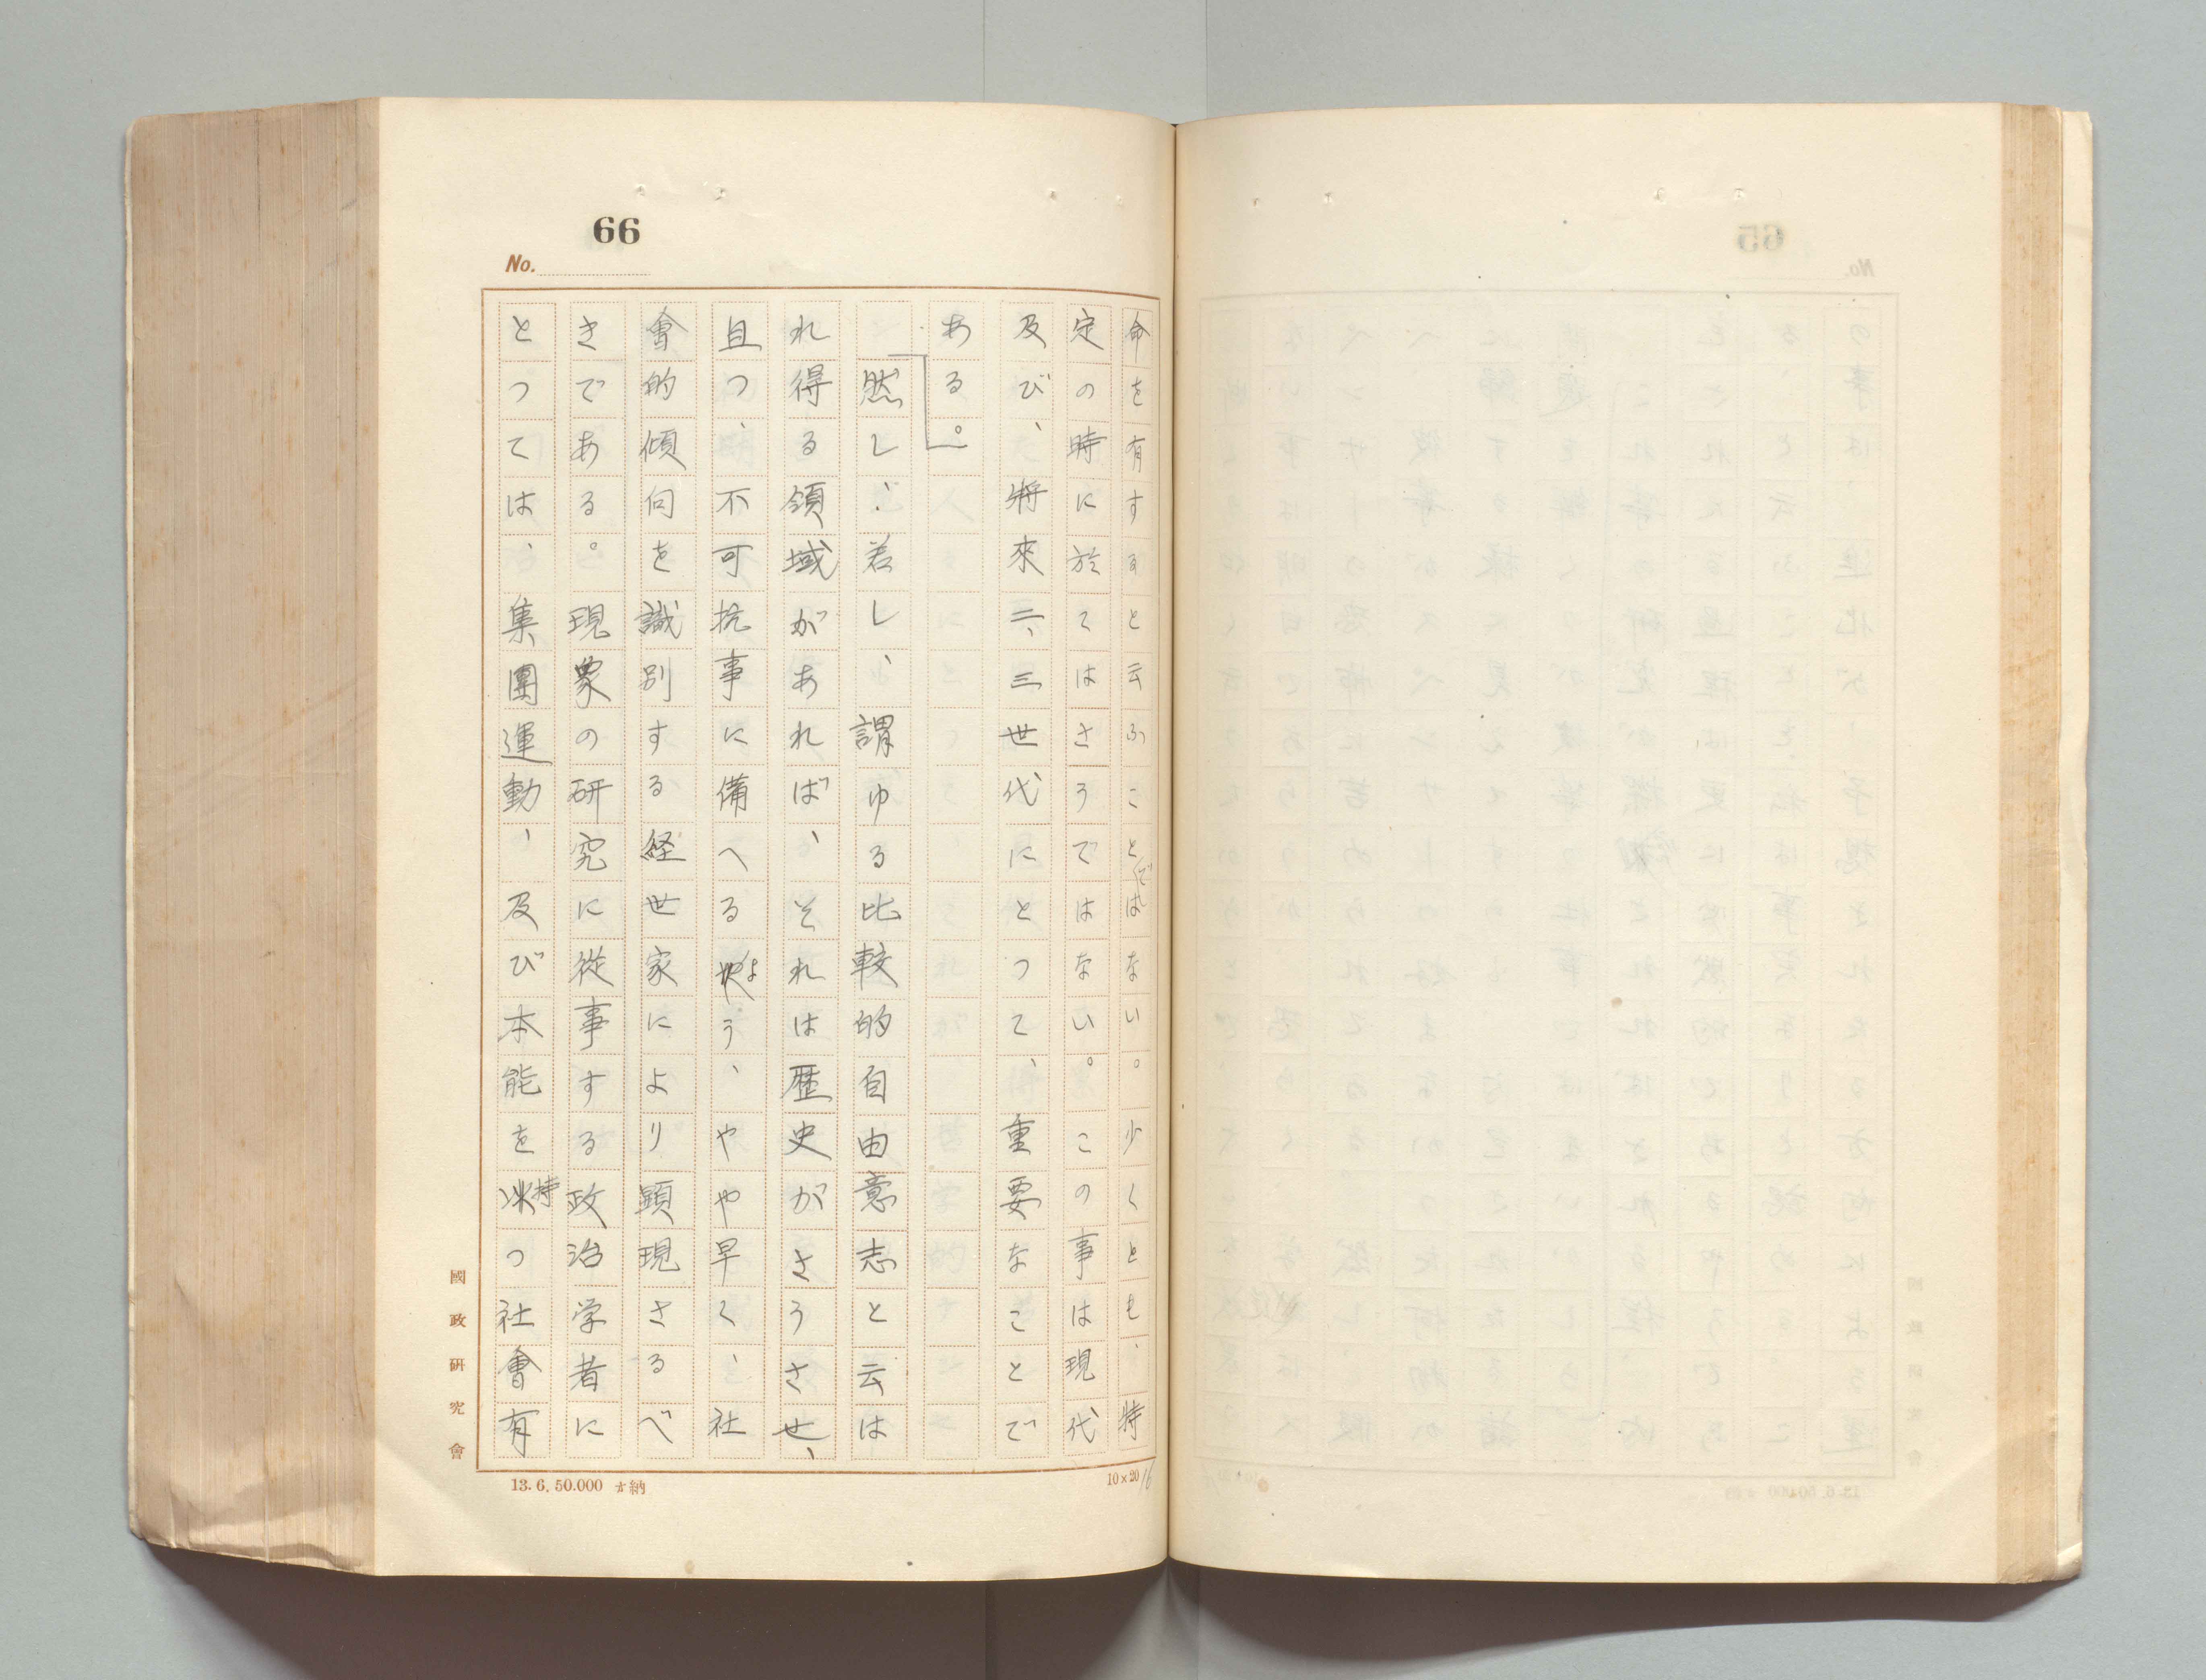 66
No.
命を有すると云ふことではない。少くとも、特
定の時に於てはさうではない。この事は現代
及び、將來二、三世代にとつて、重要なことで
ある。
然し、若し、謂ゆる比較的自由意志と云は
れ得る領域があれば、それは歴史がさうさせ、
且つ、不可抗事に備へるよう、やや早く、社
會的傾向を識別する経世家により顕現さるべ
きである。現象の研究に從事する政治学者に
とつては、集團運動、及び本能を持つ社會有
國政研究會
13.6.50.000 納
10×20
16